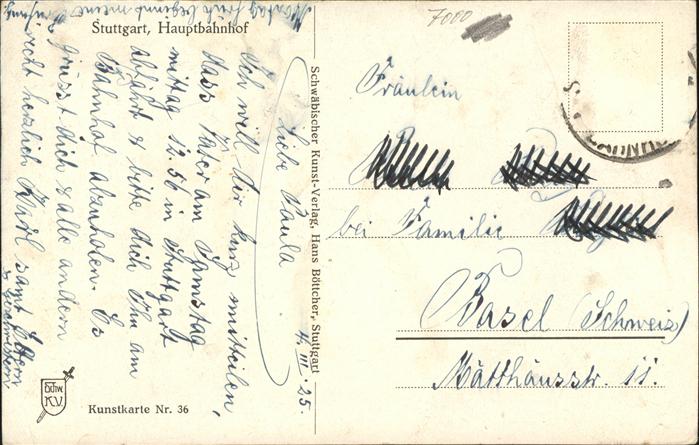 Montag früh beginnt meine
Stuttgart, Hauptbahnhof
4. III. 25.
Liebe Paula
Ich will Dir kurz mitteilen,
dass Vater am Samstag
mittag 12.56 in Stuttgart
abfährt & bitte dich ihn am
Bahnhof abzuholen. Es
grüsst dich & alle andern
recht herzlich Karl samt Eltern
& Geschwistern
Schwäbischer Kunst-Verlag, Hans Böttcher, Stuttgart
Kunstkarte Nr. 36
7000
Fräulein
bei Familie
Basel (Schweiz)
Matthäusstr. 11.